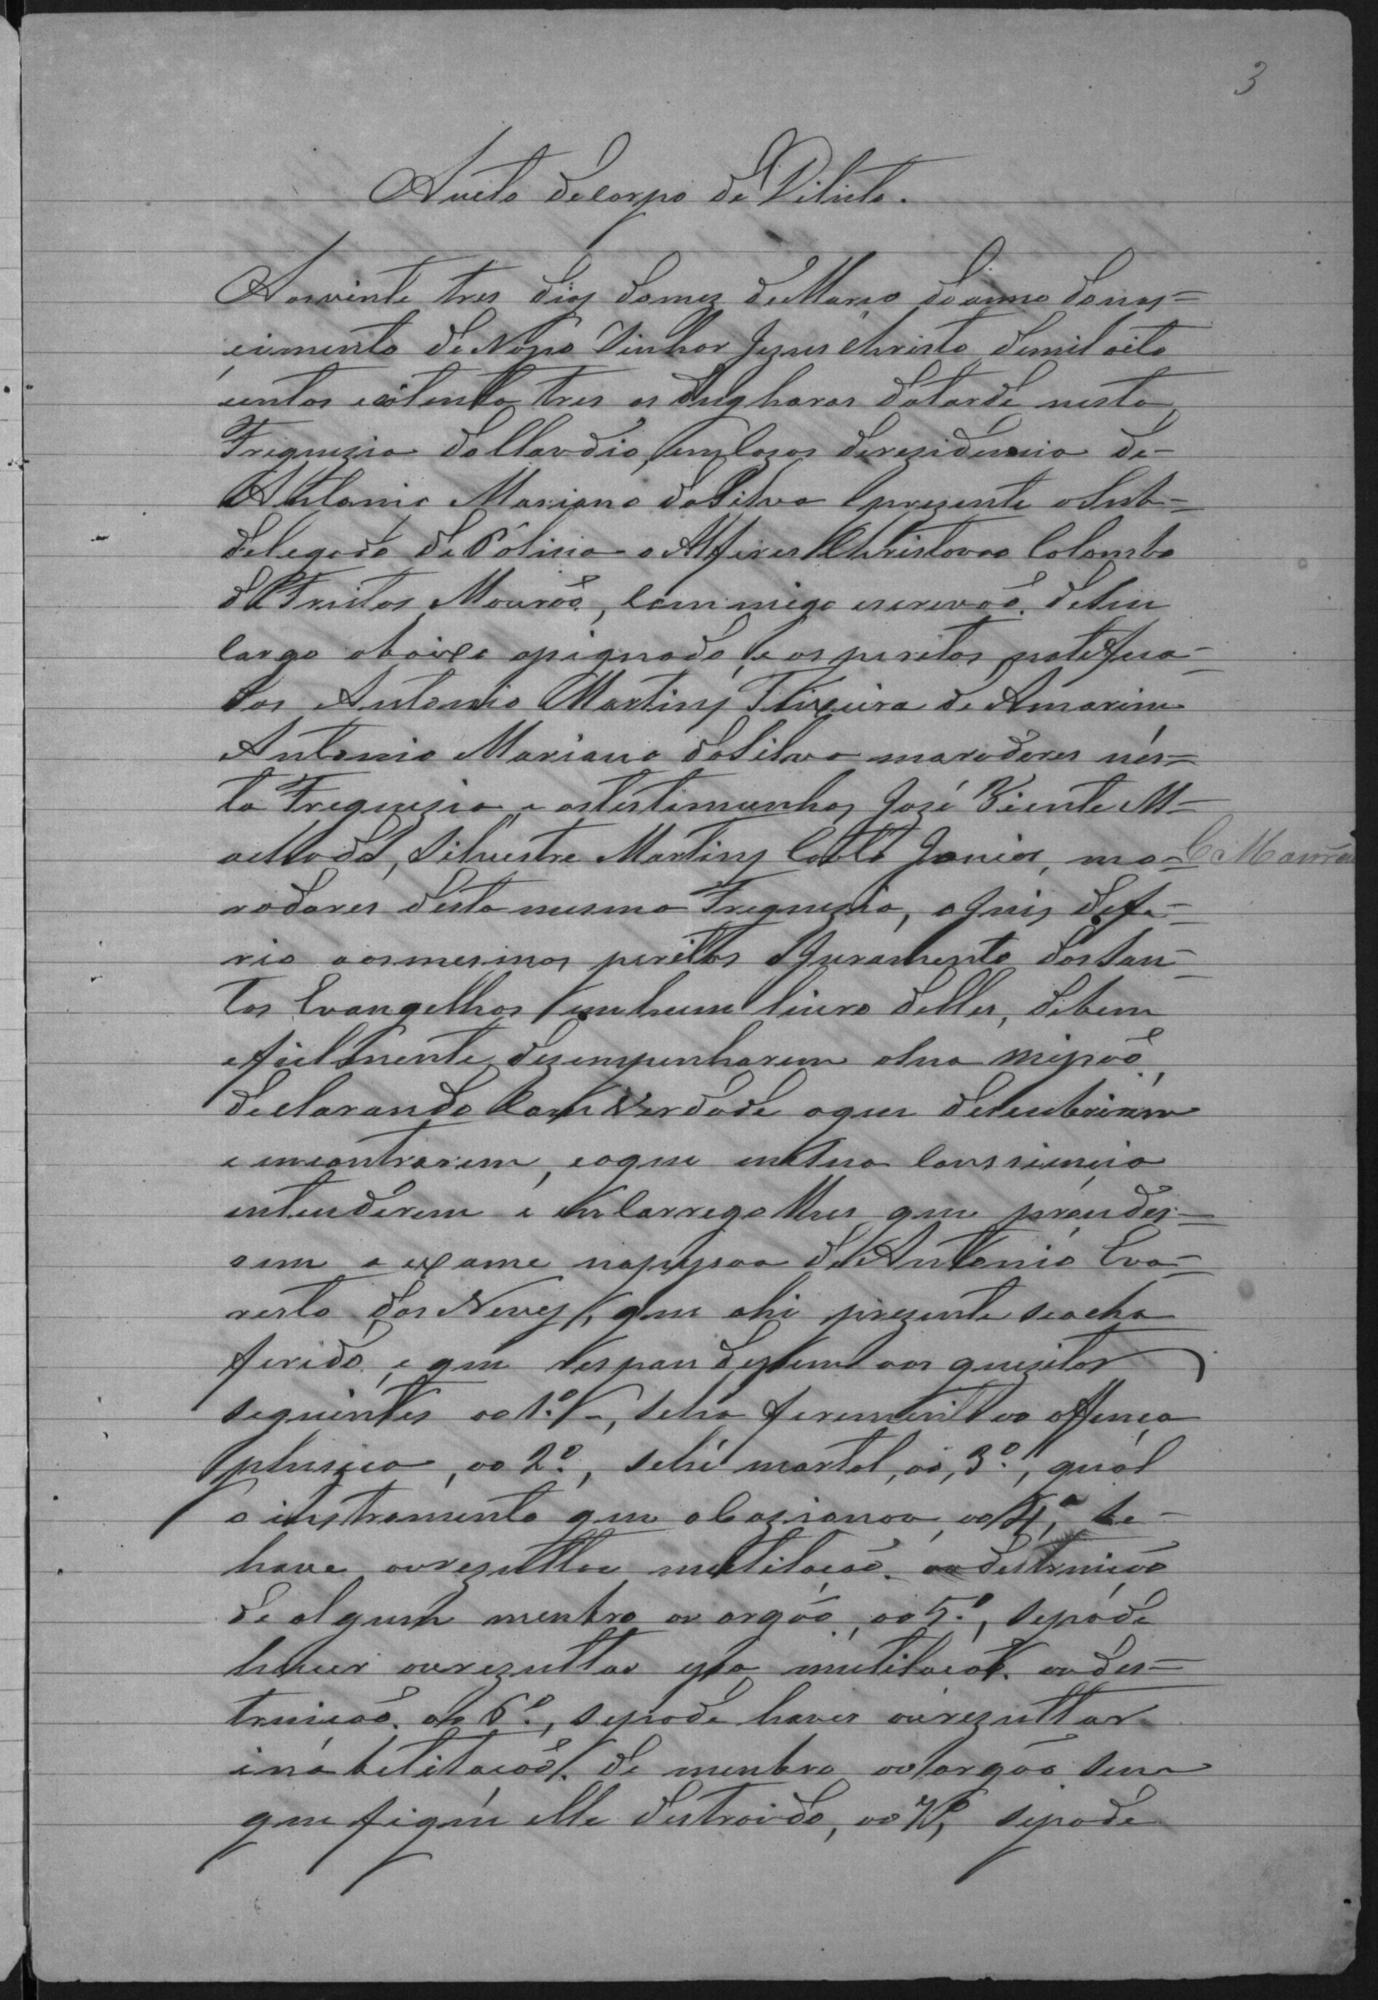 3
Aucto de corpo de Dilicto.
Aos vinte tres dias do mez de Março do anno do nas=
cimento de Nosso Sinhor Jezus Christo de mil oito
centos e oitenta tres as duas horas da tarde nesta
Freguezia do Claudio, em Cazas de rezidencia de
Antonio Mariano da Silva prezente o Sub=
delegado de Policia o Alferes Christovaõ Colombo
de Freitas Mouraõ, Commigo escrevaõ de seu
cargo abaixo assignado, e os peritos notefica=
dos Antonio Martins Teixeira de Amorim
Antonio Mariano da Silva moradores nes=
ta Freguezia e as testimunhas José Vicente M=
achado, Silvestre Martins Couto Junior, mo=
C Mouraõ
radores desta mesma Freguezia, o Juis defe=
rio aos mesmos peritos o Juramento dos San=
tos Evangelhos em hum livro delles, de bem
e fielmente dezempenharem a sua missaõ,
declarando Com Verdade o que descubrirem
e encontrarem, e o que em sua Consciencia
entenderem e encarregoulhes que proceder=
em a exame na pessoa de Antonio Eva=
risto das Neves, que ahi prezente se acha
ferido, e que respondessem aos quezitos
seguintes ao 1º, se ha ferimento ou offença
phizica, ao 2º, se hé mortal, ao 3º, qual
o instromento que o Cazionou, ao 4º, se
have ou rezultou mutilaçaõ ou destruiçaõ
de algum menbro ou orgaõ, ao 5º, se póde
haver ou rezultar essa mutilaçaõ ou des=
truiçaõ, ao 6º, se pode haver ou rezultar
inabilitaçaõ de menbro ou orgaõ sem
que fique elle destroido, ao 7º, se pode